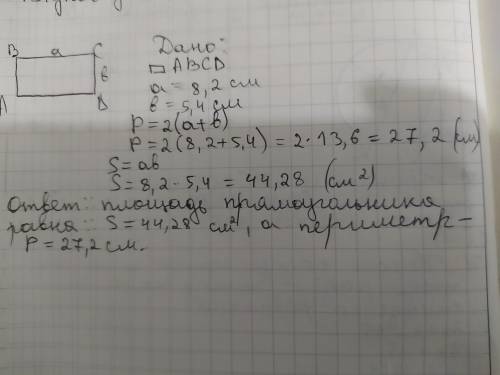 B a C
Дано:
▭ ABCD
в
a = 8,2 см
A D
в = 5,4 см
P = 2(a+в)
P = 2(8,2+5,4) = 2·13,6 = 27,2 (см)
S = aв
S = 8,2·5,4 = 44,28 (см²)
Ответ: площадь прямоугольника
равна: S = 44,28 см², а периметр –
P = 27,2 см.